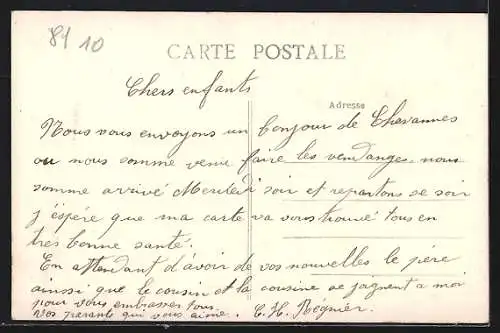 84 10
CARTE POSTALE
Chers enfants
Adresse
Nous vous envoyons un bonjour de Chevannes
ou nous somme venu faire les vendange nous
somme arrivé Mercledi soir et repartons se soir
j'éspére que ma carte va vous trouvé tous en
très bonne santé.
En attendant d'avoir de vos nouvelles le pére
ainssi que le cousin et la cousine se joignent a moi
pour vous embrasser tous.
Vos parents qui vous aime. C. H. Régnier.